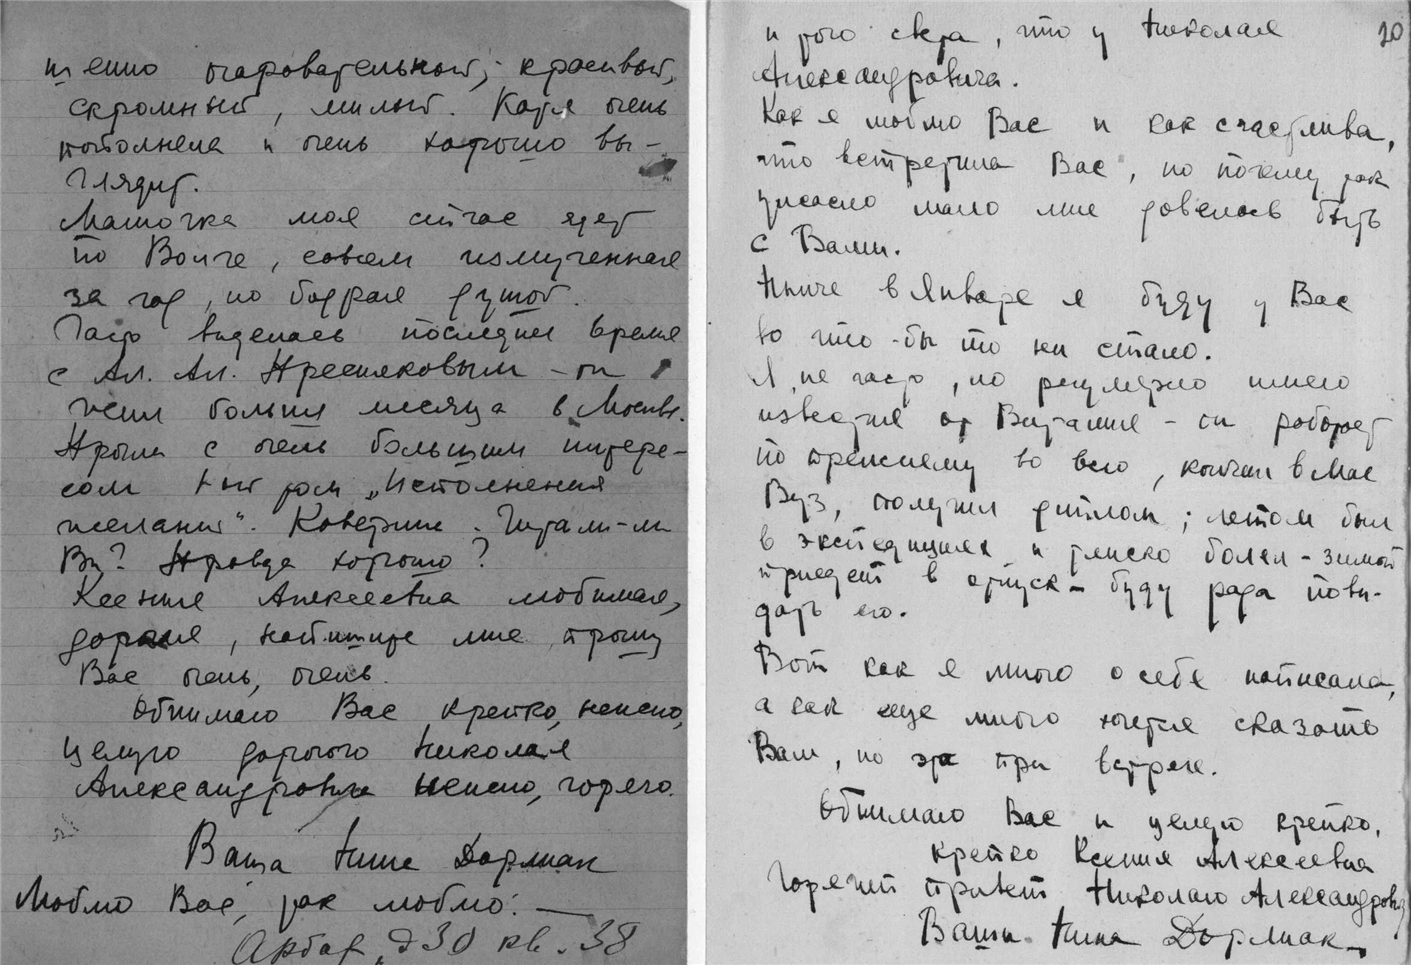 очаровательный, красивый,
скромный, милый. Катя очень
пополнела и очень хорошо вы-
глядит.
Мамочка моя сейчас едет
по Волге, совсем измученная
за год, но бодрая душой.
Часто виделась последнее время
с Ал. Ал. Пресняковым – он
жил больше месяца в Москве.
Прочла с очень большим интере-
сом "Исполнения
желаний". Каверин. Читали-ли
Вы? Правда хорошо?
Ксения Алексеевна любимая,
дорогая, напишите мне, прошу
Вас очень, очень.
Обнимаю Вас крепко, нежно,
целую дорогого Николая
Александровича нежно, горячо.
Ваша Нина Дорлиак
Люблю Вас, так люблю! —
Арбат, д 30 кв. 38
20
и того света, что у Николая
Александровича.
Как я люблю Вас и как счастлива,
что встретила Вас, но почему так
ужасно мало мне довелось быть
с Вами.
Нынче в Январе я буду у Вас
во что-бы то ни стало.
Я, не часто, но регулярно имею
известия от Виталия – он работает
по прежнему во всю, кончил в Мае
Вуз, получил диплом; летом был
в экспедициях и тяжело болел – зимой
приедет в отпуск – буду рада пови-
дать его.
Вот как я много о себе написала,
а как еще много хочется сказать
Вам, но это при встрече.
Обнимаю Вас и целую крепко,
крепко Ксения Алексеевна
Горячий привет Николаю Александровичу
Ваша Нина Дорлиак